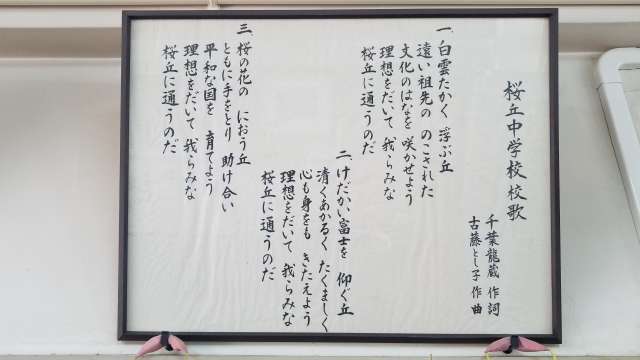 桜丘中学校校歌
千葉龍蔵 作詞
古藤とし子 作曲
一、白雲たかく 浮ぶ丘
遠い祖先の のこされた
文化のはなを 咲かせよう
理想をだいて 我らみな
桜丘に通うのだ
二、けだかい富士を 仰ぐ丘
清くあかるく たくましく
心も身をも きたえよう
理想をだいて 我らみな
桜丘に通うのだ
三、桜の花の におう丘
ともに手をとり 助け合い
平和な国を 育てよう
理想をだいて 我らみな
桜丘に通うのだ